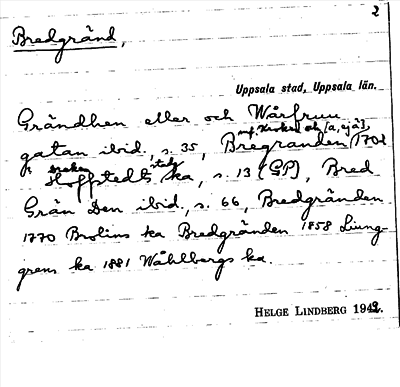 2
Bredgränd,
Uppsala stad, Uppsala län.
Grändhen eller och Wårfruu
gatan ibid., s. 35, Bregranden 1702
Hoffstedts ka, s. 13 (GP), Bred
Grän Den ibid., s. 66, Bredgränden
1770 Brolins ka Bredgränden 1858 Ljung-
grens ka 1881 Wåhlbergs ka.
HELGE LINDBERG 1942.